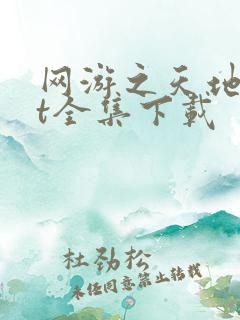 网游之天地
t全集下载
杜劲松
未经同意禁止转载